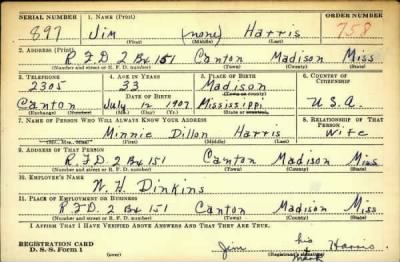 SERIAL NUMBER 1. NAME (Print) ORDER NUMBER
897 Jim (none) Harris 758
(First) (Middle) (Last)
2. ADDRESS (Print)
R.F.D 2 Bx 151 Canton Madison Miss
(Number and street or R. F. D. number) (Town) (County) (State)
3. TELEPHONE 4. AGE IN YEARS 5. PLACE OF BIRTH 6. COUNTRY OF CITIZENSHIP
2305 33 Madison
DATE OF BIRTH (Town or county)
Canton July 12 1907 Mississippi U.S.A.
(Exchange) (Number) (Mo.) (Day) (Yr.) (State or country)
7. NAME OF PERSON WHO WILL ALWAYS KNOW YOUR ADDRESS 8. RELATIONSHIP OF THAT PERSON
Minnie Dillon Harris Wife
(Mr., Mrs., Miss) (First) (Middle) (Last)
9. ADDRESS OF THAT PERSON
R.F.D. 2 Bx 151 Canton Madison Miss
(Number and street or R. F. D. number) (Town) (County) (State)
10. EMPLOYER'S NAME
W. H. Dinkins
11. PLACE OF EMPLOYMENT OR BUSINESS
R.F.D. 2 Bx 151 Canton Madison Miss
(Number and street or R. F. D. number) (Town) (County) (State)
I AFFIRM THAT I HAVE VERIFIED ABOVE ANSWERS AND THAT THEY ARE TRUE.
REGISTRATION CARD
D. S. S. Form 1 Jim his Harris
(over) (Registrant's signature)
mark